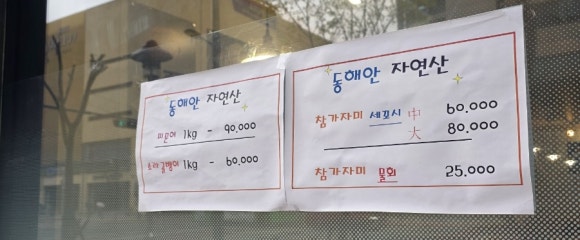 동해안 자연산
1kg - 90,000
1kg - 60,000
동해안 자연산
참가자미 세꼬시 中 60,000
大 80,000
참가자미 물회 25,000